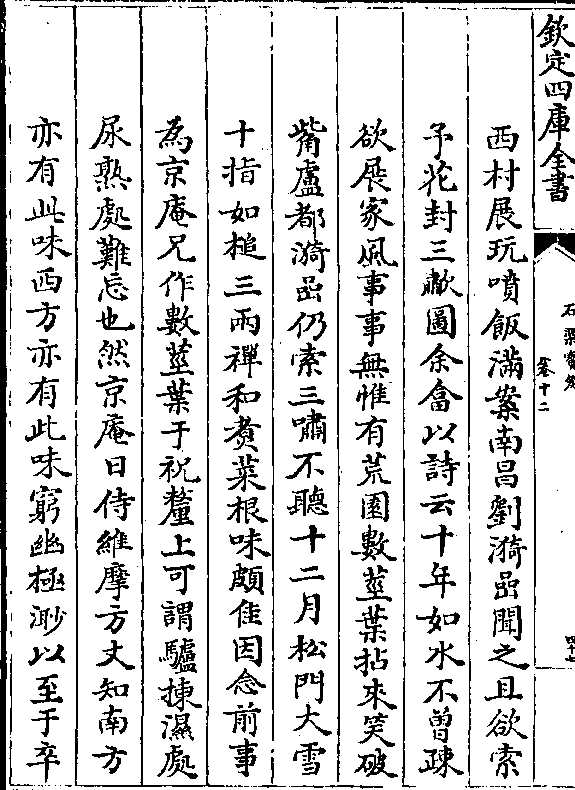 欽定四庫全書
石渠寶笈
卷十二
四十七
西村展玩噴飯滿案南昌劉漪嵒聞之且欲索
予花封三歗圖余畣以詩云十年如水不曾疎
欲展家風事事無惟有荒園數莖葉拈來笑破
觜盧都漪嵒仍索三嘯不聽十二月松門大雪
十指如槌三兩禪和煑菜根味頗佳因念前事
為京庵兄作數莖葉于祝釐上可謂驢揀濕處
尿熟處難忘也然京庵日侍維摩方丈知南方
亦有此味西方亦有此味窮幽極渺以至于卒